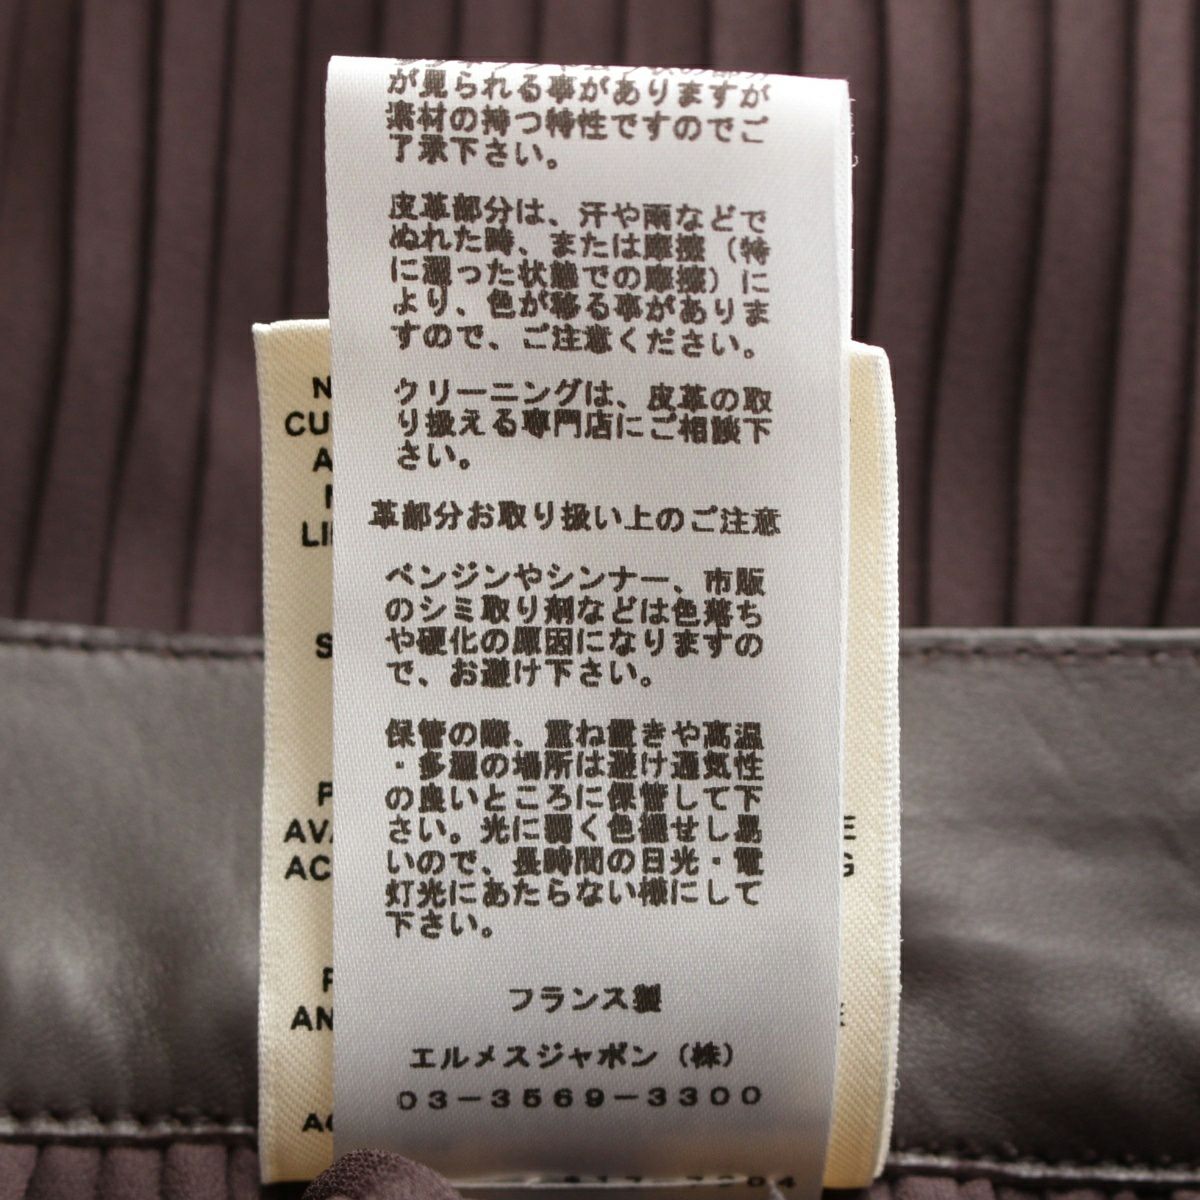 が見られる事がありますが
素材の持つ特性ですのでご
了承下さい。
皮革部分は、汗や雨などで
ぬれた時、または摩擦（特
に湿った状態での摩擦）に
より、色が移る事がありま
すので、ご注意ください。
クリーニングは、皮革の取
り扱える専門店にご相談下
さい。
革部分お取り扱い上のご注意
ベンジンやシンナー、市販
のシミ取り剤などは色落ち
や硬化の原因になりますの
で、お避け下さい。
保管の際、重ね置きや高温
・多湿の場所は避け通気性
の良いところに保管して下
さい。光に弱く色褪せし易
いので、長時間の日光・電
灯光にあたらない様にして
下さい。
フランス製
エルメスジャポン（株）
03-3569-3300